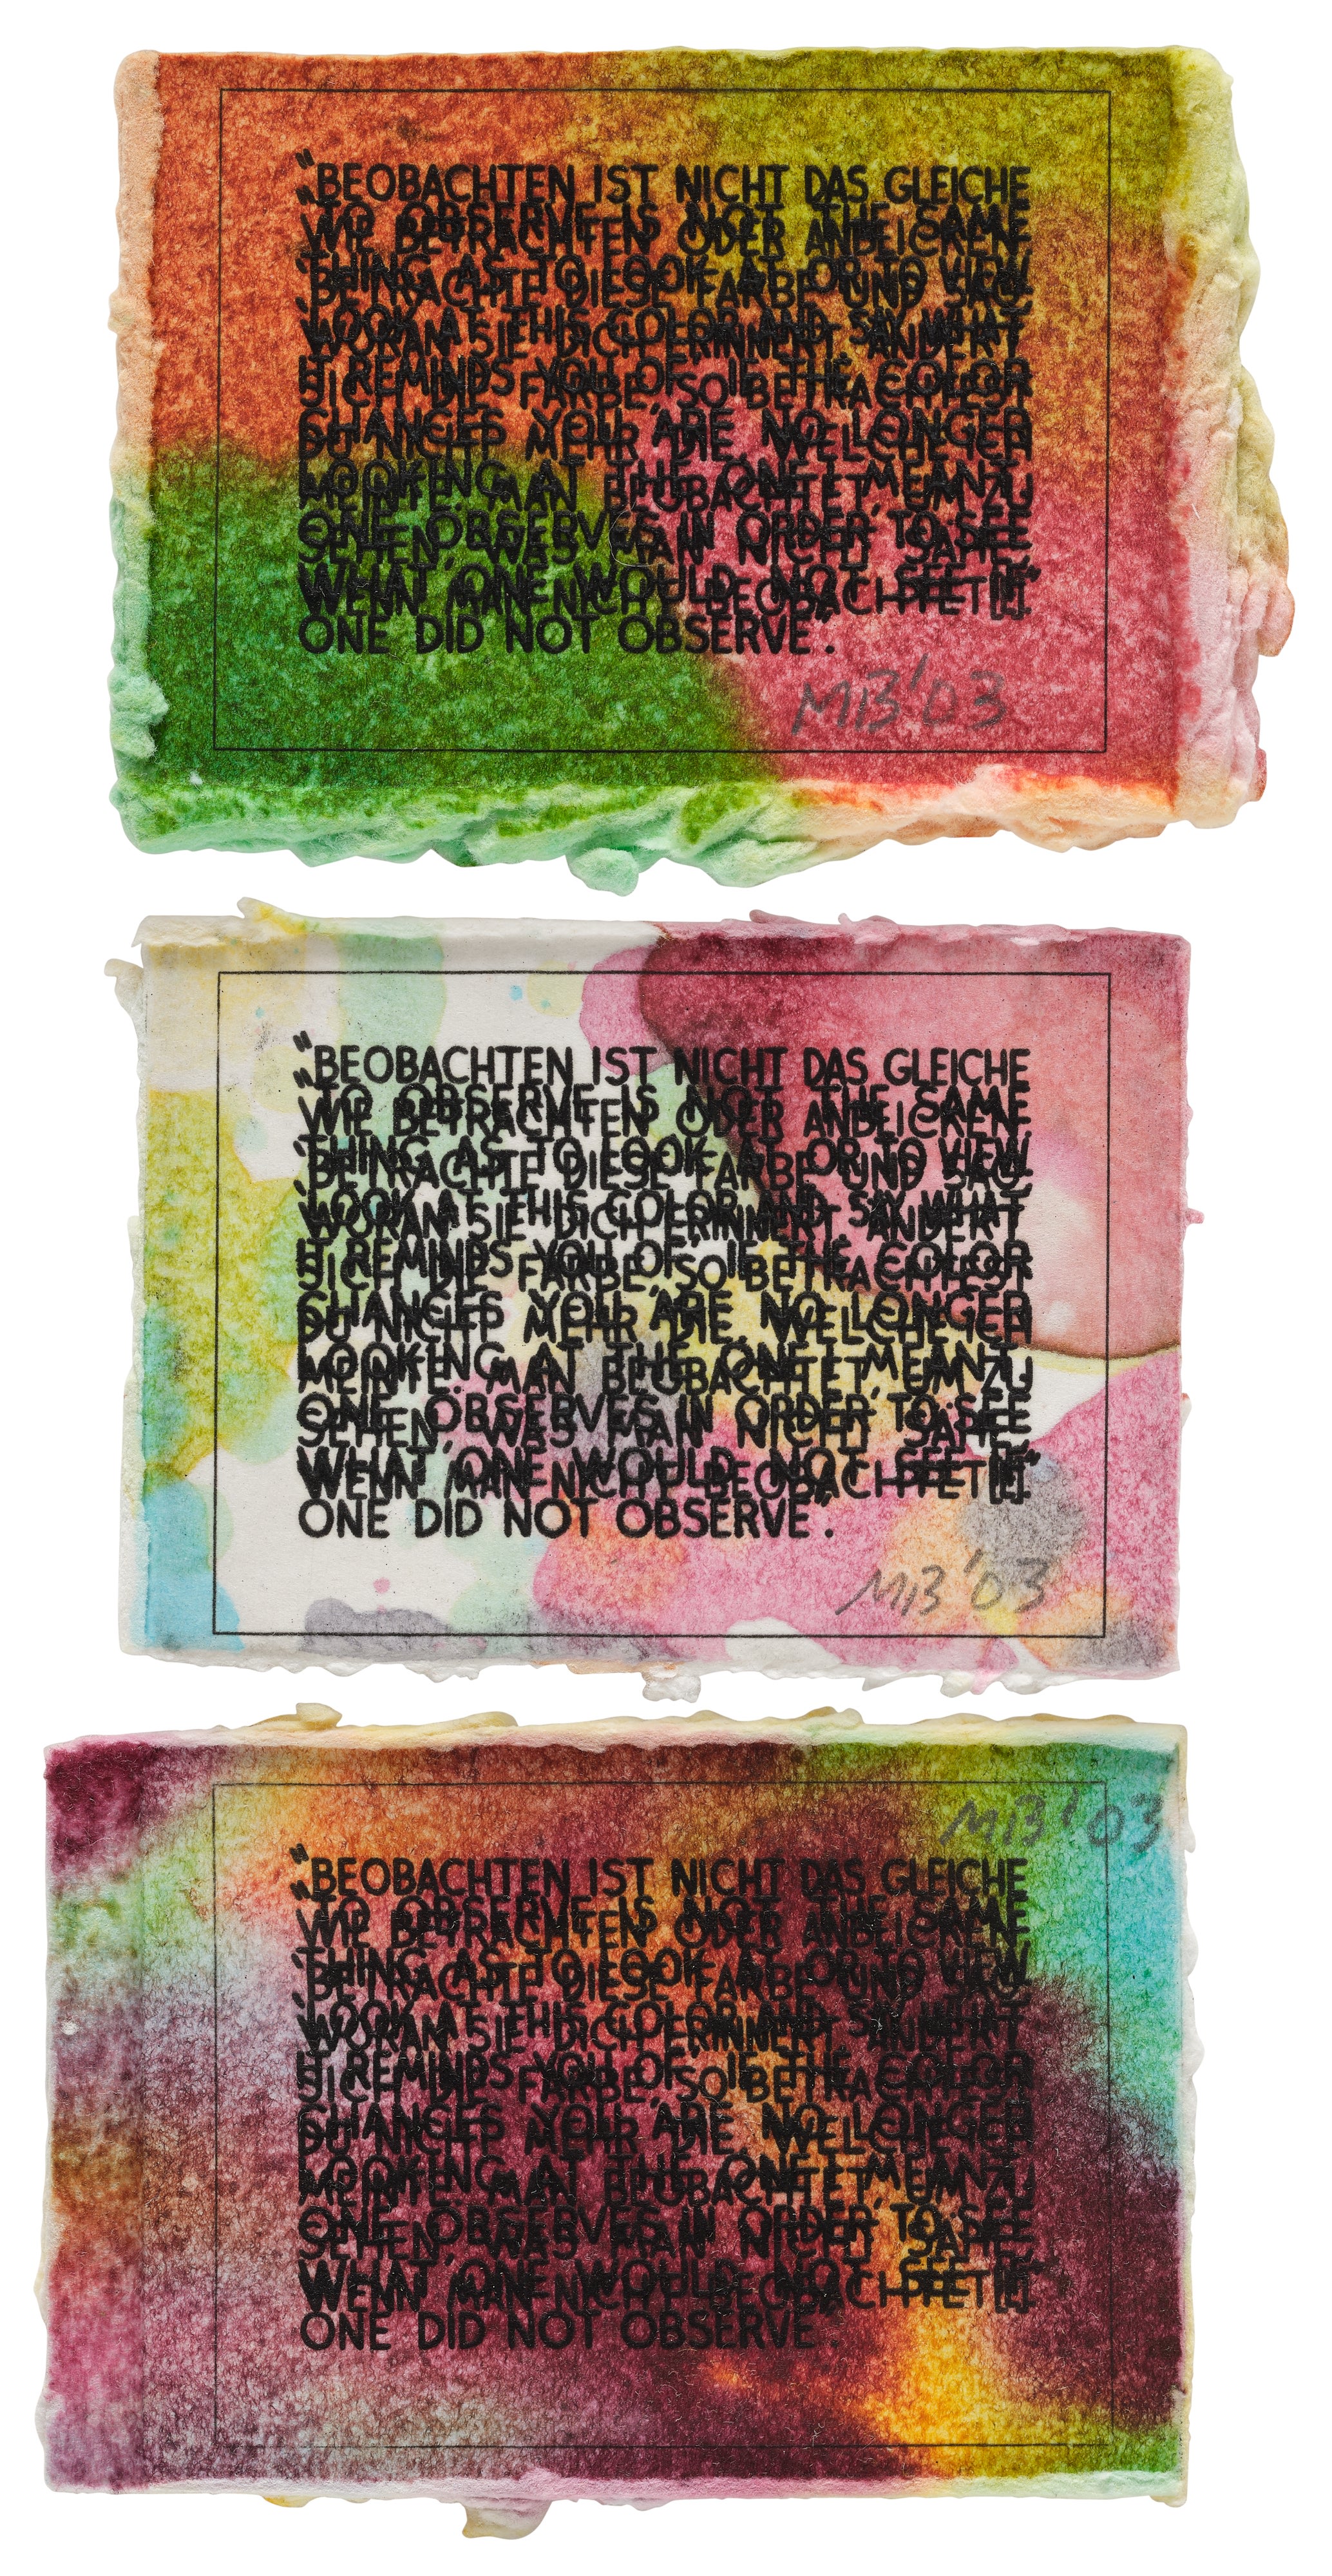 "BEOBACHTEN IST NICHT DAS GLEICHE
"TO OBSERVE IS NOT THE SAME
WIE BETRACHTEN ODER ANBLICKEN
THING AS TO LOOK AT OR TO VIEW
'BETRACHTE DIESE FARBE UND SAG,
'LOOK AT THIS COLOR AND SAY WHAT
WORAN SIE DICH ERINNERT'. ÄNDERT
IT REMINDS YOU OF.' IF THE COLOR
SICH DIE FARBE, SO BETRACHTEST
CHANGES YOU ARE NO LONGER
DU NICHT MEHR DIE, WELCHE ICH
LOOKING AT THE ONE I MEANT.
MEINTE. MAN BEOBACHTET, UM ZU
ONE OBSERVES IN ORDER TO SEE
SEHEN, WAS MAN NICHT SÄHE,
WHAT ONE WOULD NOT SEE IF
WENN MAN NICHT BEOBACHTET[E]."
ONE DID NOT OBSERVE".
MB '03
"BEOBACHTEN IST NICHT DAS GLEICHE
"TO OBSERVE IS NOT THE SAME
WIE BETRACHTEN ODER ANBLICKEN
THING AS TO LOOK AT OR TO VIEW
'BETRACHTE DIESE FARBE UND SAG,
'LOOK AT THIS COLOR AND SAY WHAT
WORAN SIE DICH ERINNERT'. ÄNDERT
IT REMINDS YOU OF.' IF THE COLOR
SICH DIE FARBE, SO BETRACHTEST
CHANGES YOU ARE NO LONGER
DU NICHT MEHR DIE, WELCHE ICH
LOOKING AT THE ONE I MEANT.
MEINTE. MAN BEOBACHTET, UM ZU
ONE OBSERVES IN ORDER TO SEE
SEHEN, WAS MAN NICHT SÄHE,
WHAT ONE WOULD NOT SEE IF
WENN MAN NICHT BEOBACHTET[E]."
ONE DID NOT OBSERVE".
MB '03
MB '03
"BEOBACHTEN IST NICHT DAS GLEICHE
"TO OBSERVE IS NOT THE SAME
WIE BETRACHTEN ODER ANBLICKEN
THING AS TO LOOK AT OR TO VIEW
'BETRACHTE DIESE FARBE UND SAG,
'LOOK AT THIS COLOR AND SAY WHAT
WORAN SIE DICH ERINNERT'. ÄNDERT
IT REMINDS YOU OF.' IF THE COLOR
SICH DIE FARBE, SO BETRACHTEST
CHANGES YOU ARE NO LONGER
DU NICHT MEHR DIE, WELCHE ICH
LOOKING AT THE ONE I MEANT.
MEINTE. MAN BEOBACHTET, UM ZU
ONE OBSERVES IN ORDER TO SEE
SEHEN, WAS MAN NICHT SÄHE,
WHAT ONE WOULD NOT SEE IF
WENN MAN NICHT BEOBACHTET[E]."
ONE DID NOT OBSERVE".